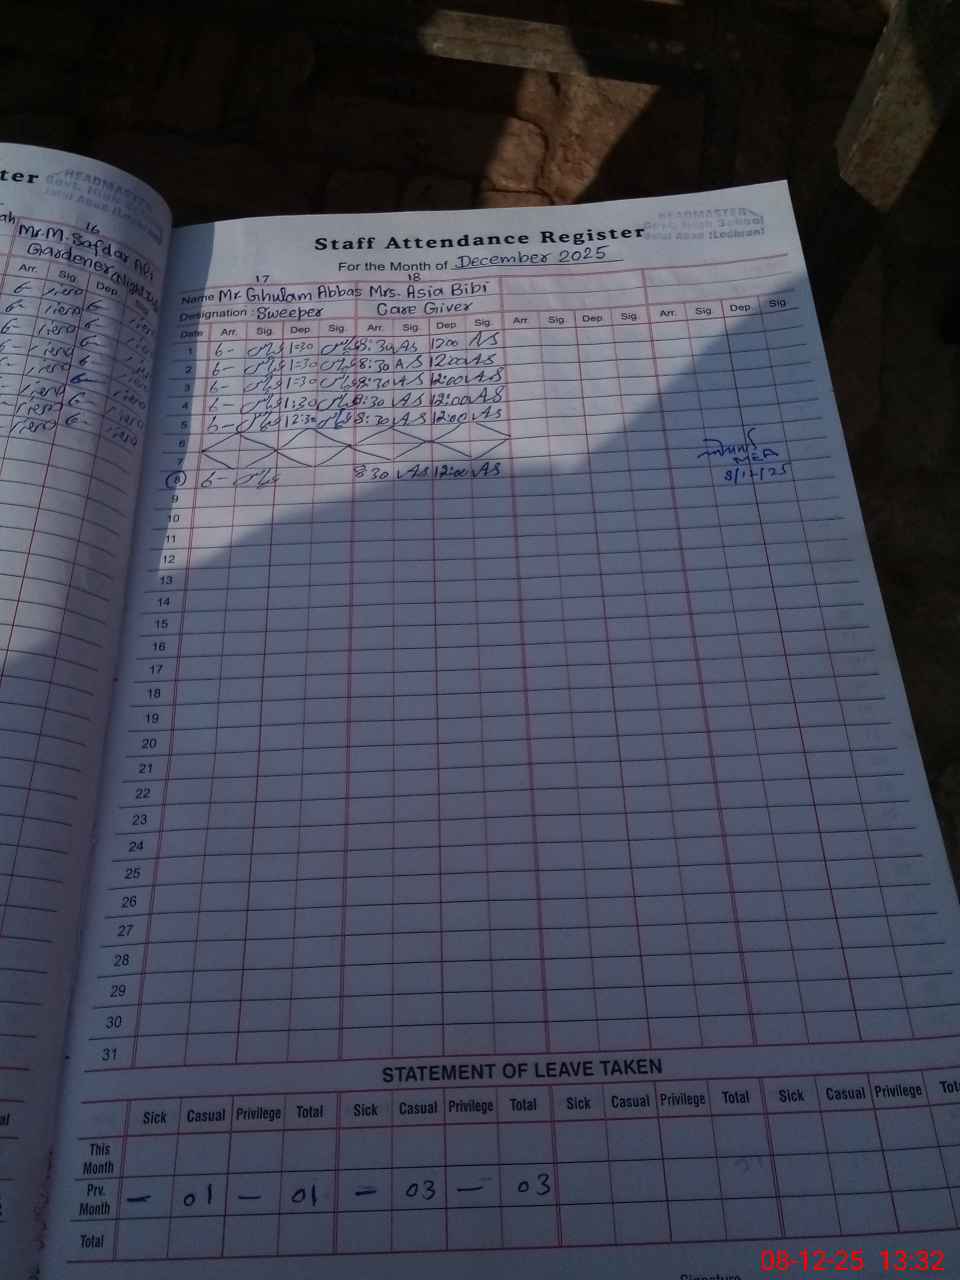 ter
HEADMASTER
Govt. High School
Jalal Abad (Lodhran)
16
Mr. M. Safdar Ali
Gardener (Night
Arr. Sig. Dep.
HEADMASTER
Govt. High School
Jalal Abad (Lodhran)
Staff Attendance Register
For the Month of December 2025
17 18
Name Mr Ghulam Abbas Mrs. Asia Bibi
Designation: Sweeper Care Giver
Date Arr. Sig. Dep. Sig. Arr. Sig. Dep. Sig. Arr. Sig. Dep. Sig. Arr. Sig. Dep. Sig.
1 6- 1:30 8:30 AS 1200 AS
2 6- 1:30 8:30 AS 12:00 AS
3 6- 1:30 8:30 AS 12:00 AS
4 6- 1:30 8:30 AS 12:00 AS
5 6- 12:30 8:30 AS 12:00 AS
6
7
8 6- 8 30 AS 12:00 AS
MEA
8/12/25
9
10
11
12
13
14
15
16
17
18
19
20
21
22
23
24
25
26
27
28
29
30
31
STATEMENT OF LEAVE TAKEN
Sick Casual Privilege Total Sick Casual Privilege Total Sick Casual Privilege Total Sick Casual Privilege Tot
This Month
Prv. Month - 01 - 01 - 03 - 03
Total
Signature
08-12-25 13:32